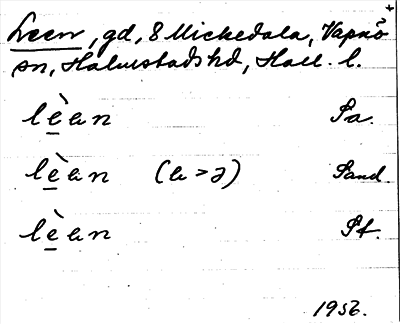 Leen, gd, 8 Mickedala, Vapnö +
sn, Halmstads hd, Hall. l.
lèan Sa.
lèɑn (ɑ > ə) Sand.
lèɑn Sf.
1956.